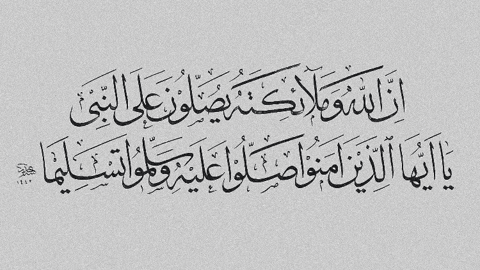 اِنَّ اللّٰهَ وَمَلَآئِكَتَهُ يُصَلُّونَ عَلَى النَّبِىِّ
يَا اَيُّهَا الَّذِيْنَ اٰمَنُوْا صَلُّوْا عَلَيْهِ وَسَلِّمُوْا تَسْلِيْمًا
١٤٤٠